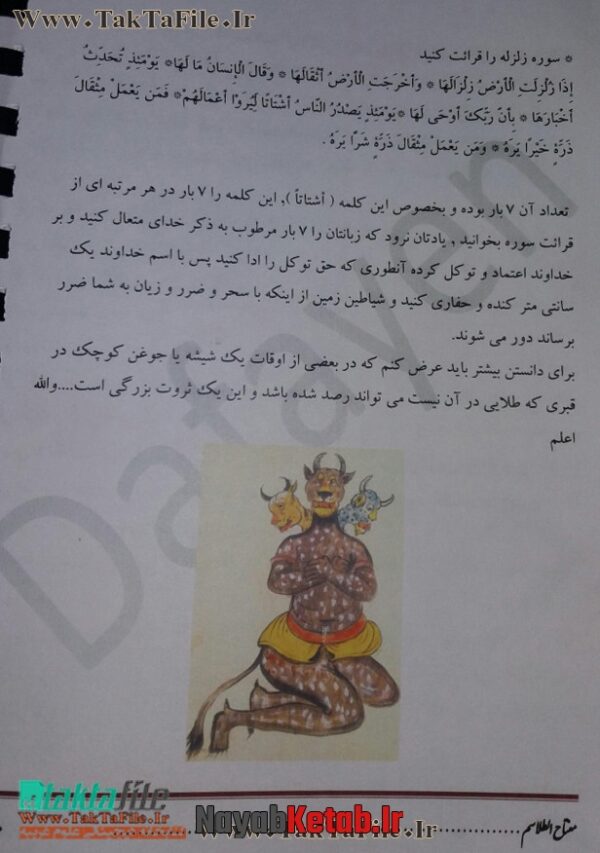 Www.TakTaFile.Ir
Www.TakTaFile.Ir
* سوره زلزله را قرائت کنید
إِذَا زُلْزِلَتِ الْأَرْضُ زِلْزَالَهَا * وَأَخْرَجَتِ الْأَرْضُ أَثْقَالَهَا * وَقَالَ الْإِنسَانُ مَا لَهَا* يَوْمَئِذٍ تُحَدِّثُ
أَخْبَارَهَا * بِأَنَّ رَبَّكَ أَوْحَى لَهَا *يَوْمَئِذٍ يَصْدُرُ النَّاسُ أَشْتَاتًا لِّيُرَوْا أَعْمَالَهُمْ* فَمَن يَعْمَلْ مِثْقَالَ
ذَرَّةٍ خَيْرًا يَرَهُ * وَمَن يَعْمَلْ مِثْقَالَ ذَرَّةٍ شَرًّا يَرَهُ .
تعداد آن ۷ بار بوده و بخصوص این کلمه ( أشتاتاً ), این کلمه را ۷ بار در هر مرتبه ای از
قرائت سوره بخوانید , یادتان نرود که زبانتان را ۷ بار مرطوب به ذکر خدای متعال کنید و بر
خداوند اعتماد و توکل کرده آنطوری که حق توکل را ادا کنید پس با اسم خداوند یک
سانتی متر کنده و حفاری کنید و شیاطین زمین از اینکه با سحر و ضرر و زیان به شما ضرر
برساند دور می شوند.
برای دانستن بیشتر باید عرض کنم که در بعضی از اوقات یک شیشه یا جوغن کوچک در
قبری که طلایی در آن نیست می تواند رصد شده باشد و این یک ثروت بزرگی است....والله
اعلم
Dafayen
taktafile
Www.TakTaFile.Ir
NayabKetab.Ir
Www.TakTaFile.Ir
مفتاح الطلاسم